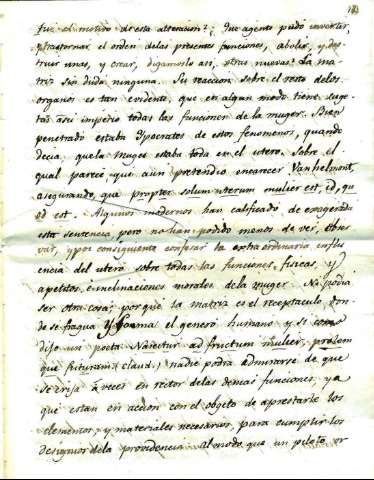 fue el motivo de esta alteracion? Que agente pudo invertir,
y trastornar el orden de las presentes funciones, abolir, y des
truir unas, y crear, digamoslo asi, otras nuevas? La ma
triz sin duda ninguna. Su reaccion sobre el resto de los
organos es tan evidente, que en algun modo tiene suge
tas à su imperio todas las funciones de la muger. Bien
penetrado estaba Ypocrates de estos fenomenos, quando
decia, que la Muger estaba toda en el utero. Sobre el
qual parece que aun pretendio encarecer Vanhelmont,
asegurando, que propter solum uterum mulier est, id, qu
od est. Algunos modernos han calificado de exagerada
esta sentencia, pero no han podido menos de ver, obser
var, y por consiguiente confesar la extraordinaria influ
encia del utero sobre todas las funciones fisicas, y
apetitos, e inclinaciones morales de la muger. No podia
ser otra cosa; porque la matriz es el receptaculo don
de se fragua y forma el genero humano y si como
dijo un poeta Nascitur ad fructum mulier, prolem
que futuram (claud.) nadie podrá admirarse de que
se erija à veces en rector de las demas funciones, ya
que estan en accion con el objeto de aprestarle los
elementos, y materiales necesarios, para cumplir los
designios de la providencia. Al modo que un piloto or